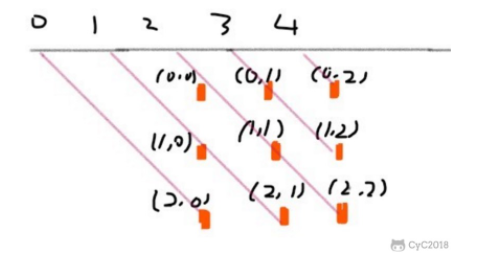 0 1 2 3 4
(0,0) (0,1) (0,2)
(1,0) (1,1) (1,2)
(2,0) (2,1) (2,2)
CyC2018